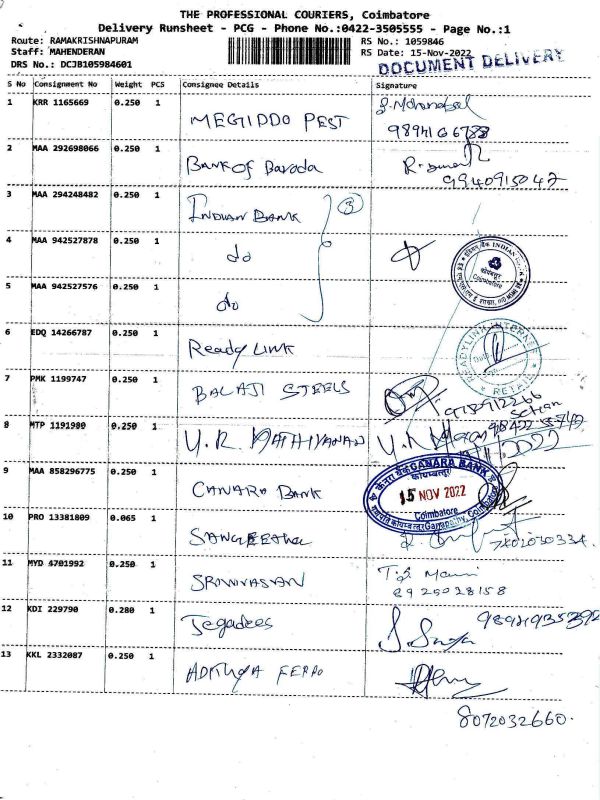 THE PROFESSIONAL COURIERS, Coimbatore
Delivery Runsheet - PCG - Phone No.:0422-3505555 - Page No.:1
Route: RAMAKRISHNAPURAM
Staff: MAHENDERAN
DRS No.: DCJB105984601
RS No.: 1059846
RS Date: 15-Nov-2022
DOCUMENT DELIVERY
S No Consignment No Weight PCS Consignee Details Signature
1 KRR 1165669 0.250 1 MEGIDDO PEST
2 MAA 292698066 0.250 1 BANK OF Baroda
9940915042
3 MAA 294248482 0.250 1 INDIAN BANK 3
4 MAA 942527878 0.250 1 do
5 MAA 942527576 0.250 1 do
INDIAN
Coimbatore
6 EDQ 14266787 0.250 1 Ready LINK
READYLINK
RETAIL
7 PMK 1199747 0.250 1 BALAJI STEELS
8 MTP 1191980 0.250 1
9 MAA 858296775 0.250 1 CANARA BANK
केनरा बैंक CANARA BANK
15 NOV 2022
Coimbatore
10 PRO 13381809 0.065 1
11 MYD 4701992 0.250 1 SRINIVASAN
8925028158
12 KDI 229790 0.280 1 Jegadees
13 KKL 2332087 0.250 1 ADITHYA FERRO
8072032660.